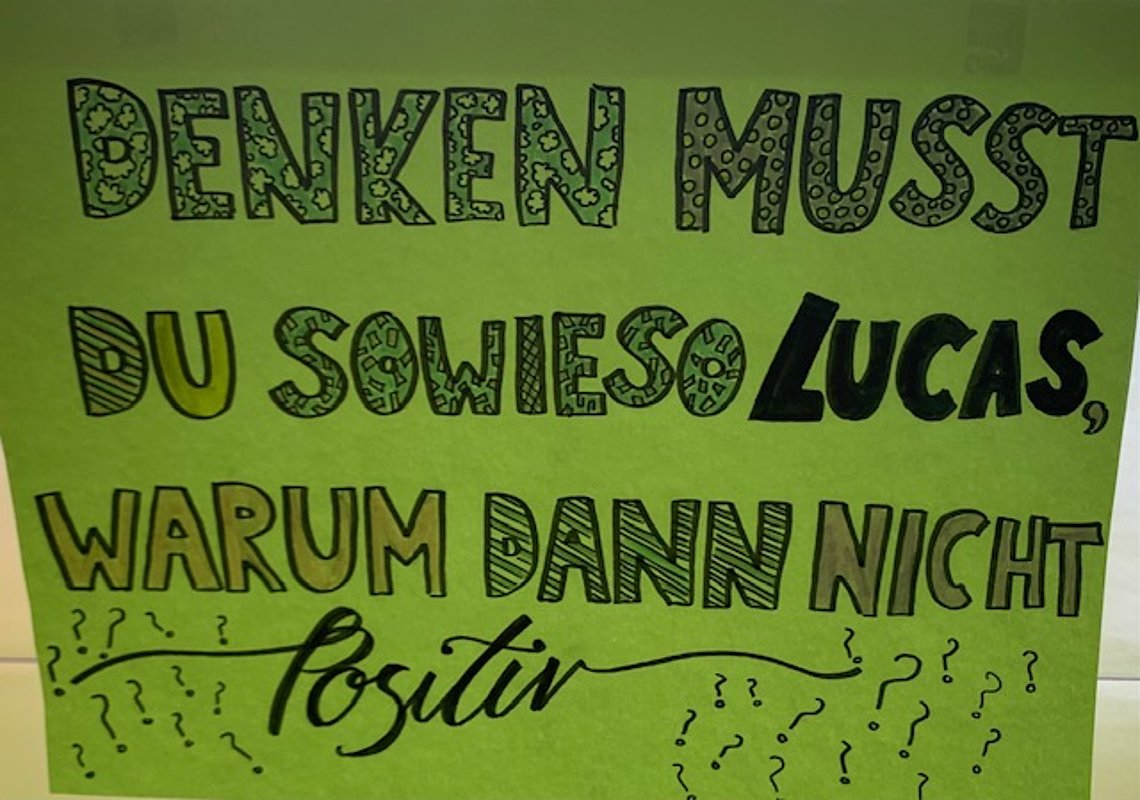 DENKEN MUSST
DU SOWIESO LUCAS,
WARUM DANN NICHT
Positiv
? ? ? ? ? ? ? ? ? ? ? ? ? ? ? ? ? ? ? ? ? ? ? ? ? ? ? ?